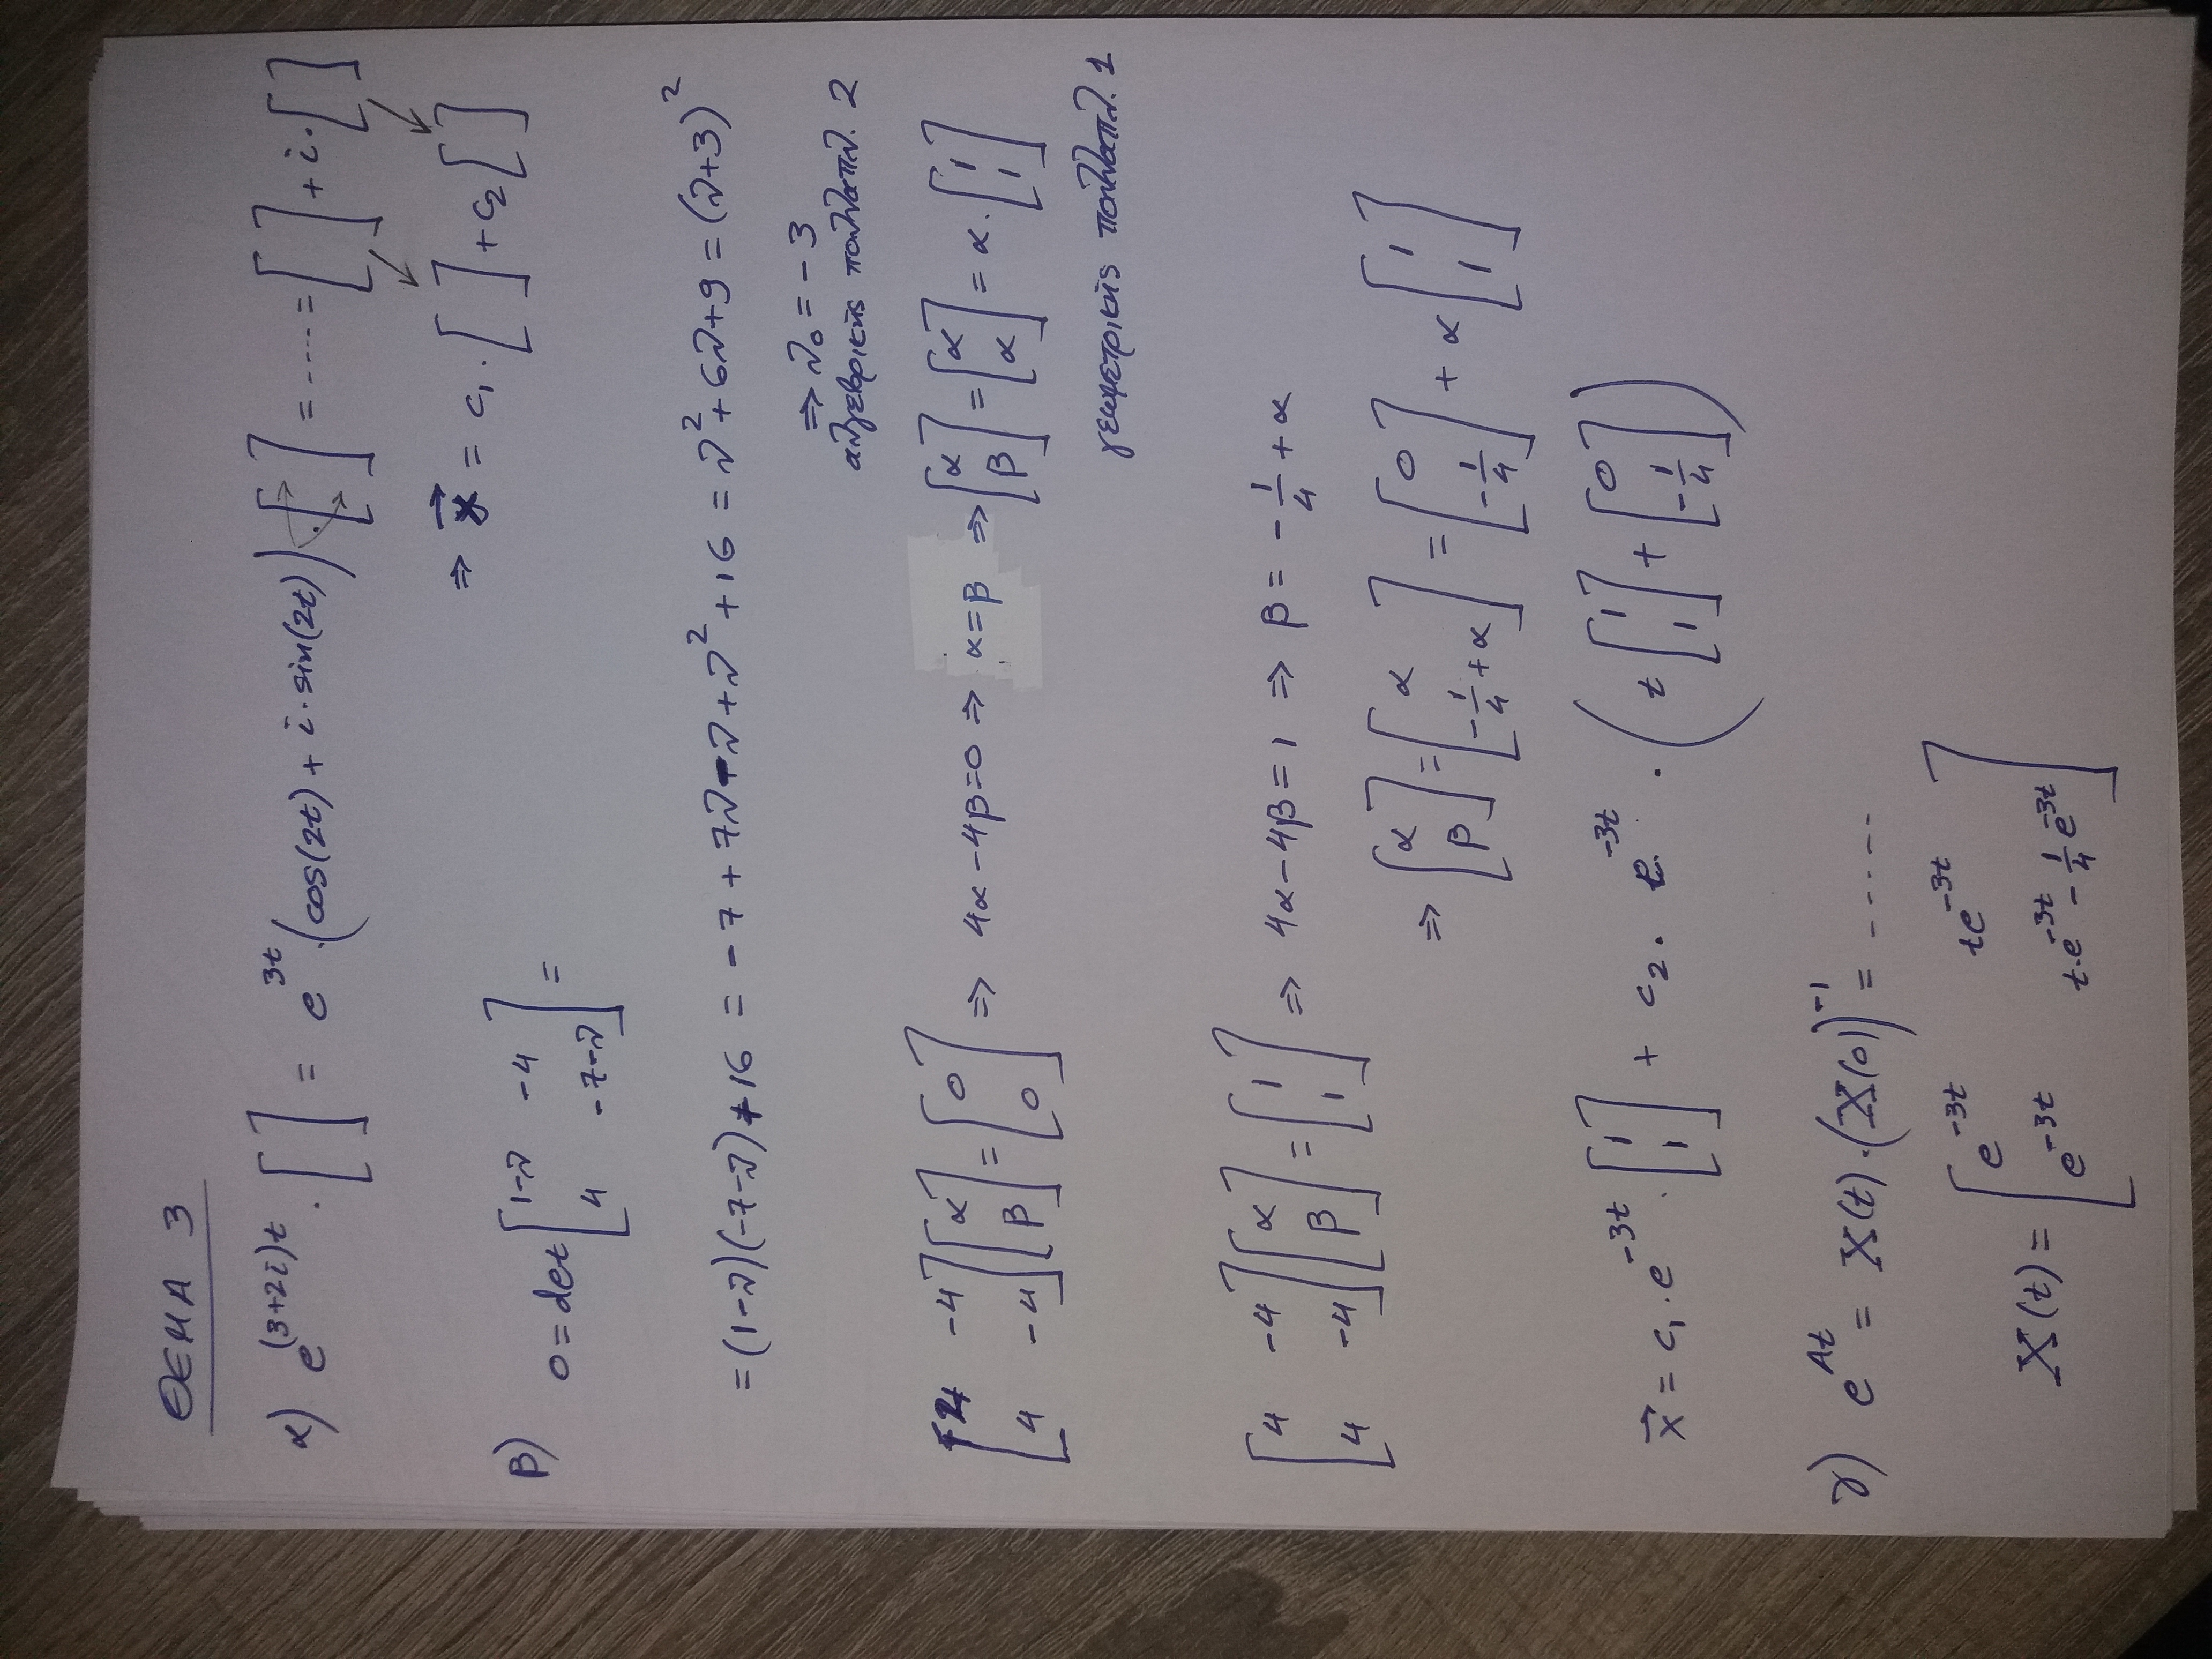 ΘΕΜΑ 3
α) e^{(3+2i)t} · [ ] = e^{3t} · (cos(2t) + i · sin(2t)) · [ ] = ---- = [ ] + i · [ ]
⇒ x⃗ = c₁ · [ ] + c₂ [ ]
β) 0 = det [1-λ -4; 4 -7-λ] =
= (1-λ)(-7-λ) + 16 = -7 + 7λ - λ + λ² + 16 = λ² + 6λ + 9 = (λ+3)²
⇒ λ₀ = -3
αλγεβρικής πολλαπλ. 2
[4 -4; 4 -4] [α; β] = [0; 0] ⇒ 4α - 4β = 0 ⇒ α = β ⇒ [α; β] = [α; α] = α · [1; 1]
γεωμετρικής πολλαπλ. 1
[4 -4; 4 -4] [α; β] = [1; 1] ⇒ 4α - 4β = 1 ⇒ β = -1/4 + α
⇒ [α; β] = [α; -1/4 + α] = [0; -1/4] + α [1; 1]
x⃗ = c₁ · e^{-3t} · [1; 1] + c₂ · e^{-3t} · (t [1; 1] + [0; -1/4])
γ) e^{At} = X(t) · (X(0))^{-1} = -----
X(t) = [e^{-3t} te^{-3t}; e^{-3t} t·e^{-3t} - 1/4 e^{-3t}]